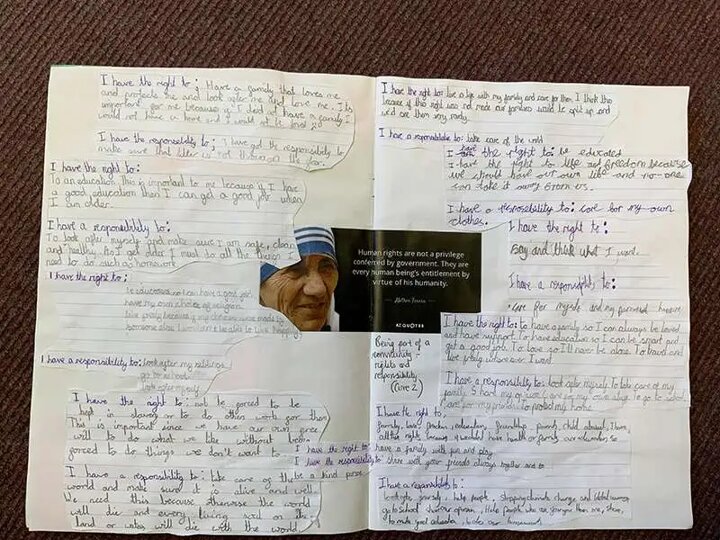 I have the right to; Have a family that loves me
and protects me and look after me and love me. Its
important for me because if I did not have a family I
would not have a home and I would
I have the responsibility to; I have got the responsibility to
make sure that litter is not thrown on the floor.
I have the right to:
To an education This is important to me because if I have
a good education then I can get a good job when
I am older.
I have a responsibility to:
To look after myself and make sure I am safe, clean
and healthy. As I get older I need to do all the things I
need to do such as homework
I have the right to;
to education so I can have a good job.
have my own choice of religion
live freely because if my decisions were made by
someone else I wouldn't be able to live happily
I have a responsibility to: look after my siblings
go to school
look after myself
I have the right to: not be forced to be
kept in slavery or to do other work for them
This is important since we have our own free
will to do what we like without been
forced to do things we don't want to.
I have a responsibility to: take care of the
world and make sure it is alive and well
We need this because otherwise the world
will die and every living soul on its
land or water will die with the world.
Human rights are not a privilege
conferred by government. They are
every human being's entitlement by
virtue of his humanity.
— Mother Teresa —
AZ QUOTES
Being part of a
community -
rights and
responsibility
(Live 2)
I have the right to: have a family with fun and play
I have the responsibility to: share with your friends always together and to
be a kind person
I have the right to: live a life with my family and care for them. I think this
because if this right was not made our families would be split up and
we'd care them very
I have a responsibility to: take care of the world
I have the right to: be educated
I have the right to life and freedom because
we should have our own life and no-one
can take it away from us.
I have a responsibility to: care for my own
clothes.
I have the right to:
Say and think what I want.
I have a responsibility to:
• Care for myself and my personal
I have the right to: to have a family so I can always be loved
and have support. To have education so I can be smart and
get a good job. To love so I'll never be alone. To travel and
live freely wherever I want.
I have a responsibility to: look after myself. To take care of my
family. to go to school
Care for my friends. To protect my home.
I have the right to,
family, love, freedom, education, friendship,
I have a responsibility to:
look after yourself, help people, stopping climate change, and global warming
go to school, share our opinion, Help people who are younger than me, share,
to make good